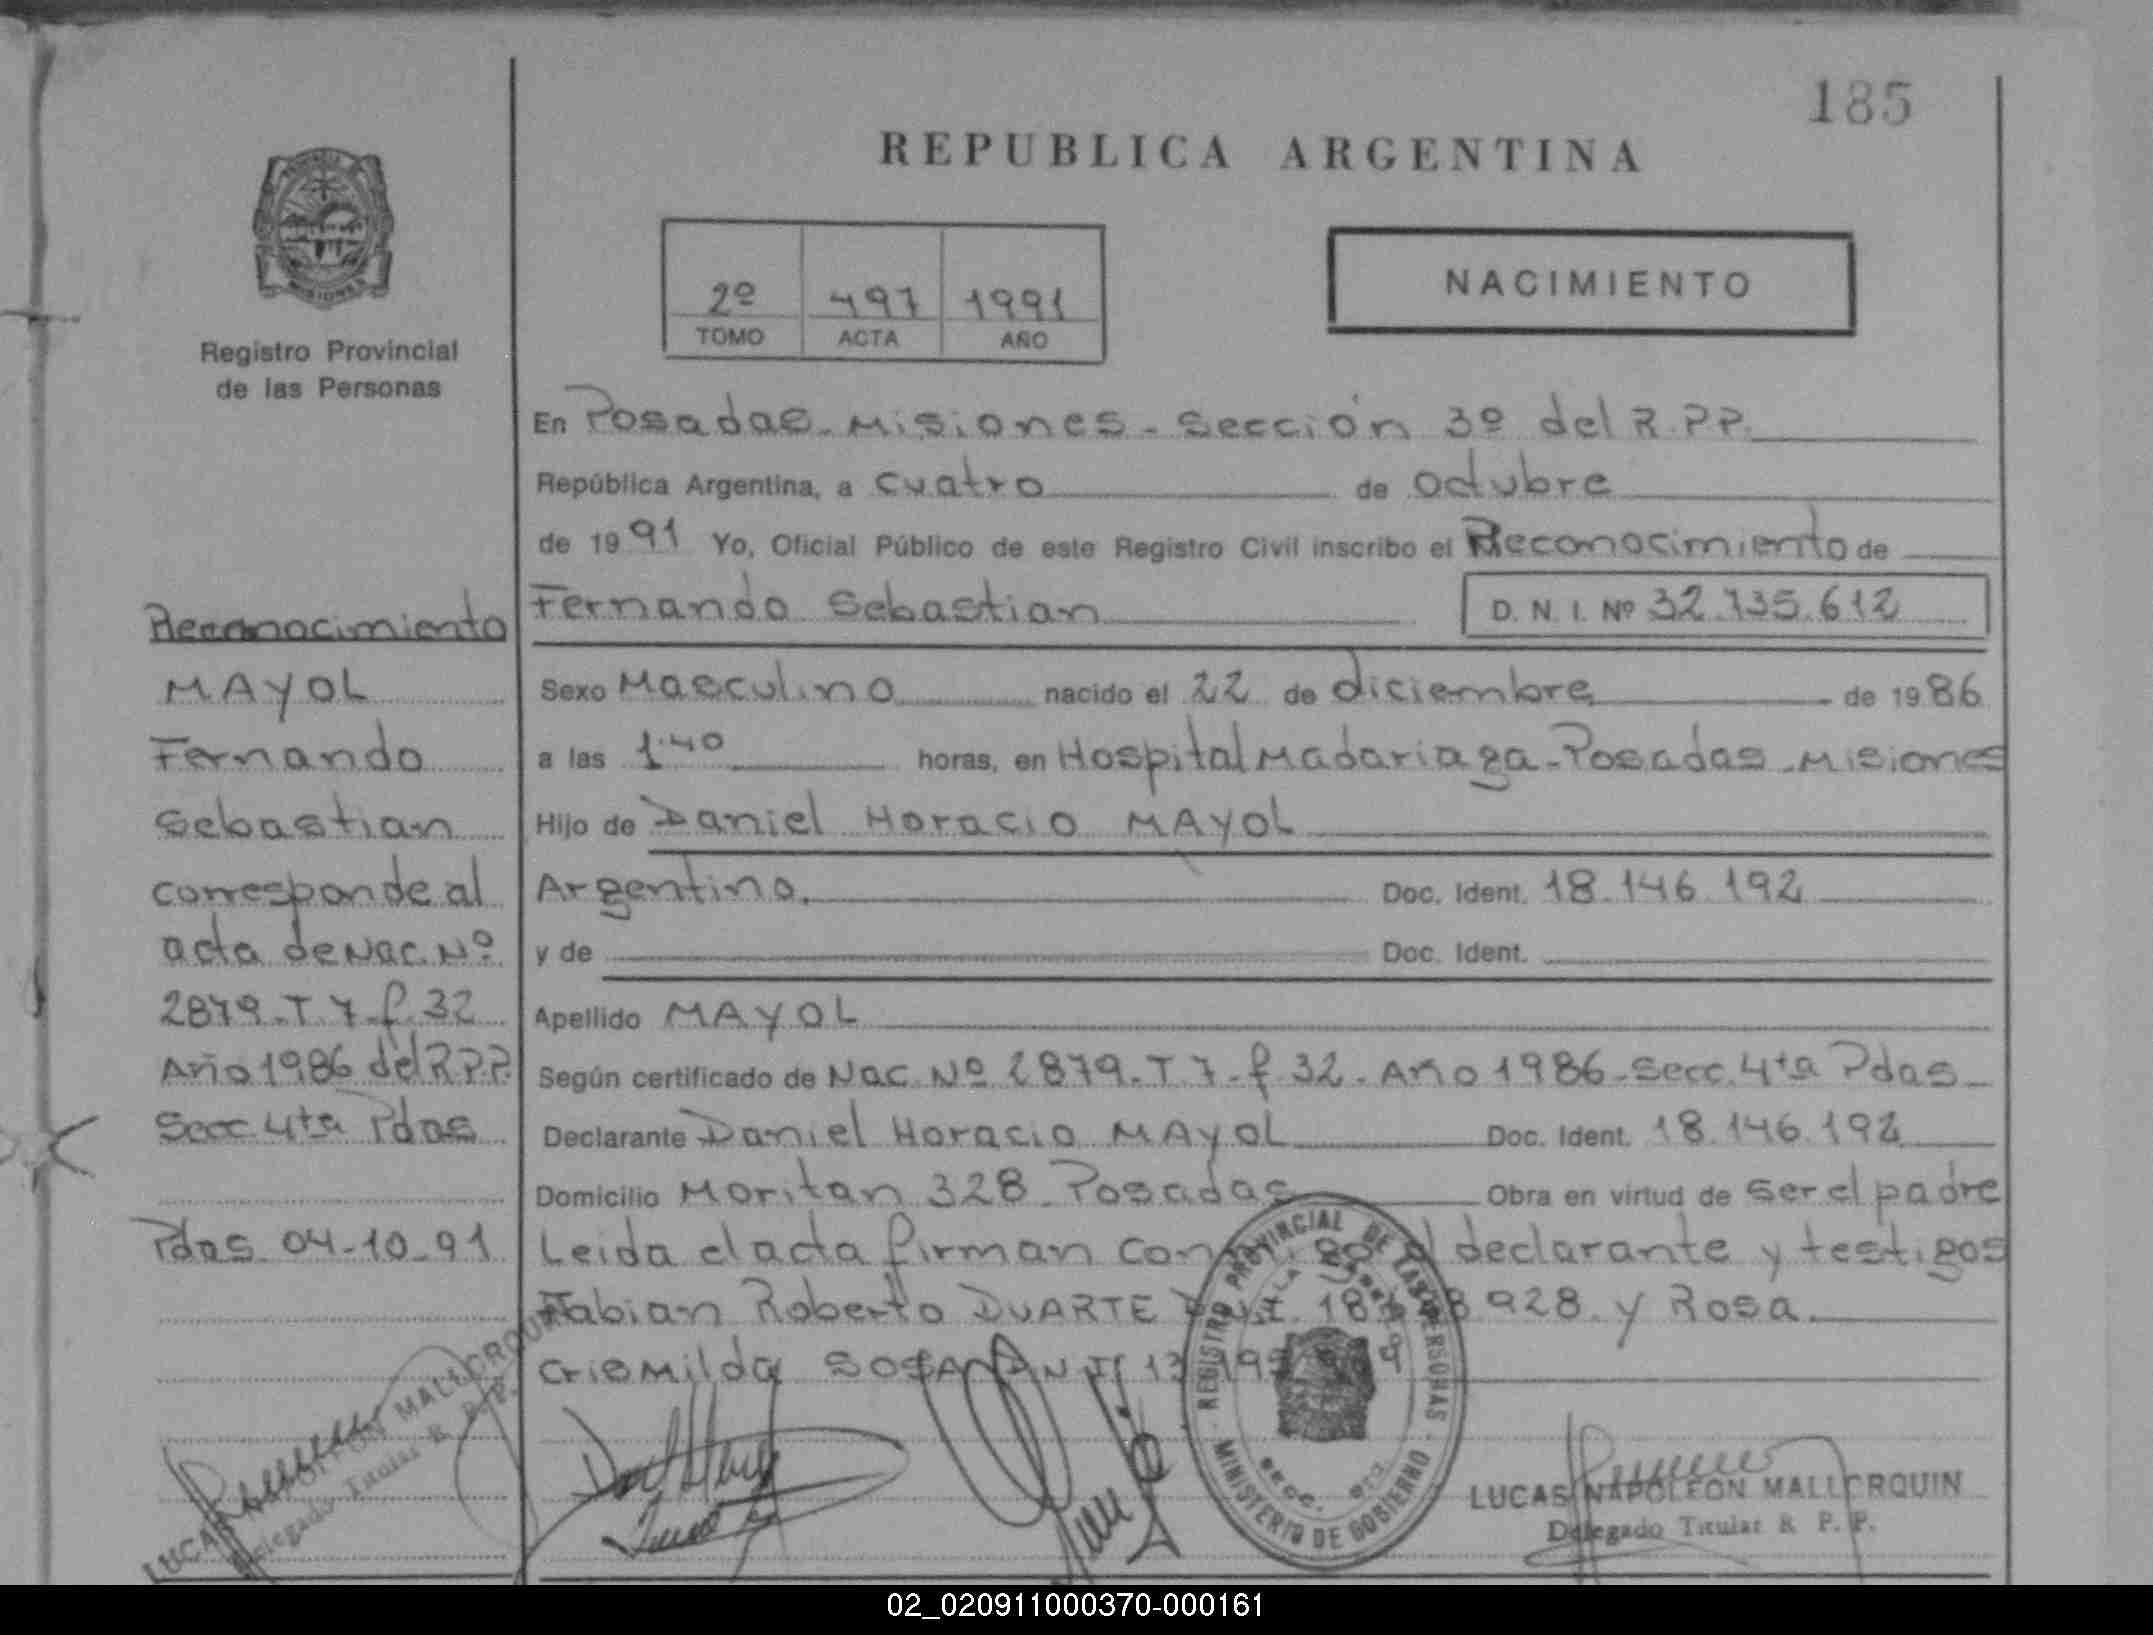 185
REPUBLICA ARGENTINA
2º 497 1991
TOMO ACTA AÑO
NACIMIENTO
Registro Provincial
de las Personas
En Posadas - Misiones - Sección 3º del R.P.P.
República Argentina, a cuatro de octubre
de 1991 Yo, Oficial Público de este Registro Civil inscribo el Reconocimiento de
Fernando Sebastian D. N. I. Nº 32.735.612
Sexo Masculino nacido el 22 de diciembre de 1986
a las 1.40 horas, en Hospital Madariaga - Posadas - Misiones
Hijo de Daniel Horacio MAYOL
Argentino. Doc. Ident. 18.146.192
y de Doc. Ident.
Apellido MAYOL
Según certificado de Nac. Nº 2879 - T 7 - f 32 - Año 1986 - Secc. 4ta Pdas
Declarante Daniel Horacio MAYOL Doc. Ident. 18.146.192
Domicilio Moritan 328 Posadas Obra en virtud de ser el padre
Leida el acta firman el declarante y testigos
Fabian Roberto DUARTE 928 y Rosa
Crismilda SOSA
Reconocimiento
MAYOL
Fernando
Sebastian
corresponde al
acta de Nac. Nº
2879 - T 7 - f. 32
Año 1986 del R.P.P.
Secc 4ta Pdas
Pdas 04-10-91
LUCAS NAPOLEON MALLORQUIN
Delegado Titular R. P. P.
REGISTRO PROVINCIAL DE LAS PERSONAS
MINISTERIO DE GOBIERNO
LUCAS NAPOLEON MALLORQUIN
Delegado Titular R. P. P.
02_020911000370-000161